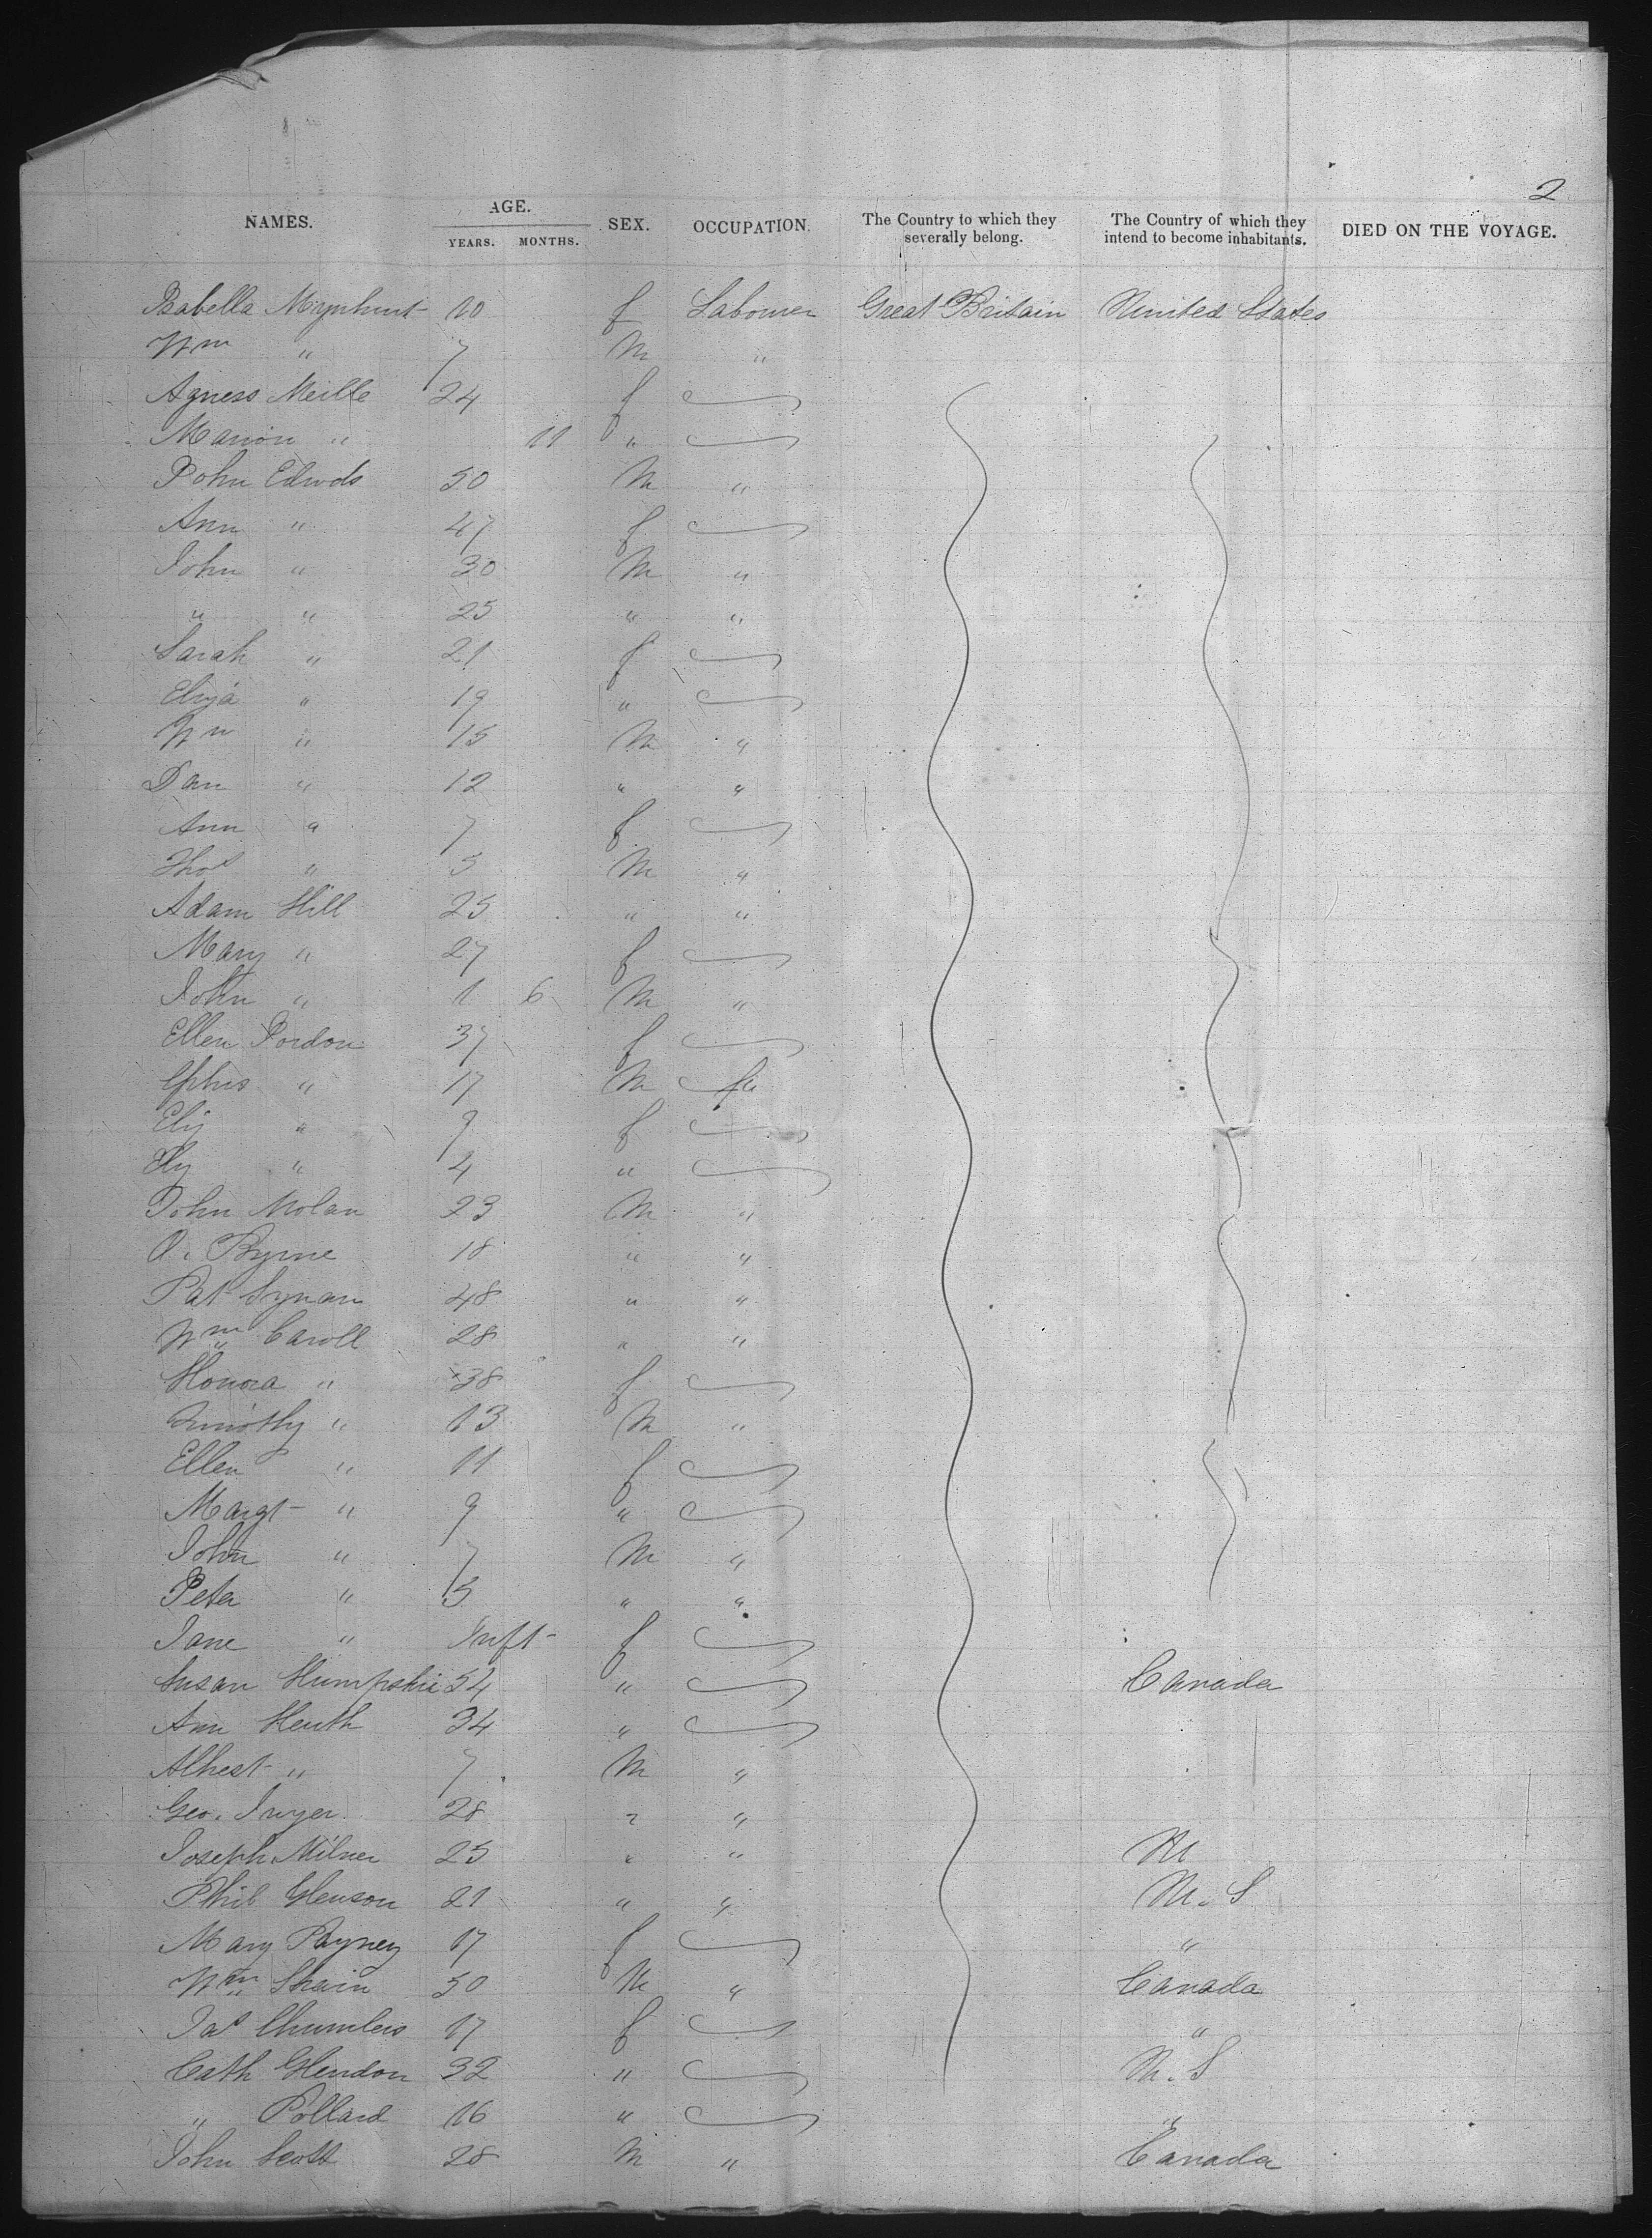 2
NAMES. AGE. YEARS. MONTHS. SEX. OCCUPATION. The Country to which they severally belong. The Country of which they intend to become inhabitants. DIED ON THE VOYAGE.
Isabella 10 f Labourer Great Britain United States
Wm " 7 M "
Agness Meille 24 f
Marion " 11 "
John Edwds 50 M "
Ann " 47 f
John " 30 M "
" " 25 " "
Sarah " 21 f
Eliza " 19 "
Wm " 15 M "
Dan " 12 " "
Ann " 7 f
Thos " 5 M "
Adam Hill 25 " "
Mary " 27 f
John " 1 6 M "
Ellen Pordon 37 f
" 17 M
" 9 f
" 4 "
John Nolan 23 M "
Byrne 18 " "
Pat Synan 48 " "
Wm Caroll 28 " "
Honora " 38 f
Timothy " 13 M "
Ellen " 11 f
Margt " 9 "
John " 7 M "
Peter " 5 " "
Jane " Inft f
Susan 54 " Canada
Ann Heuth 34 "
" 7 M "
Geo. 28 " "
Joseph Milner 25 " "
Phil Gleuson 21 " " U.S
Mary 17 f "
Wm Shain 50 M " Canada
Jas Chumbers 17 f "
Cath Glendon 32 " U.S
" Pollard 16 " "
John Scott 28 M " Canada